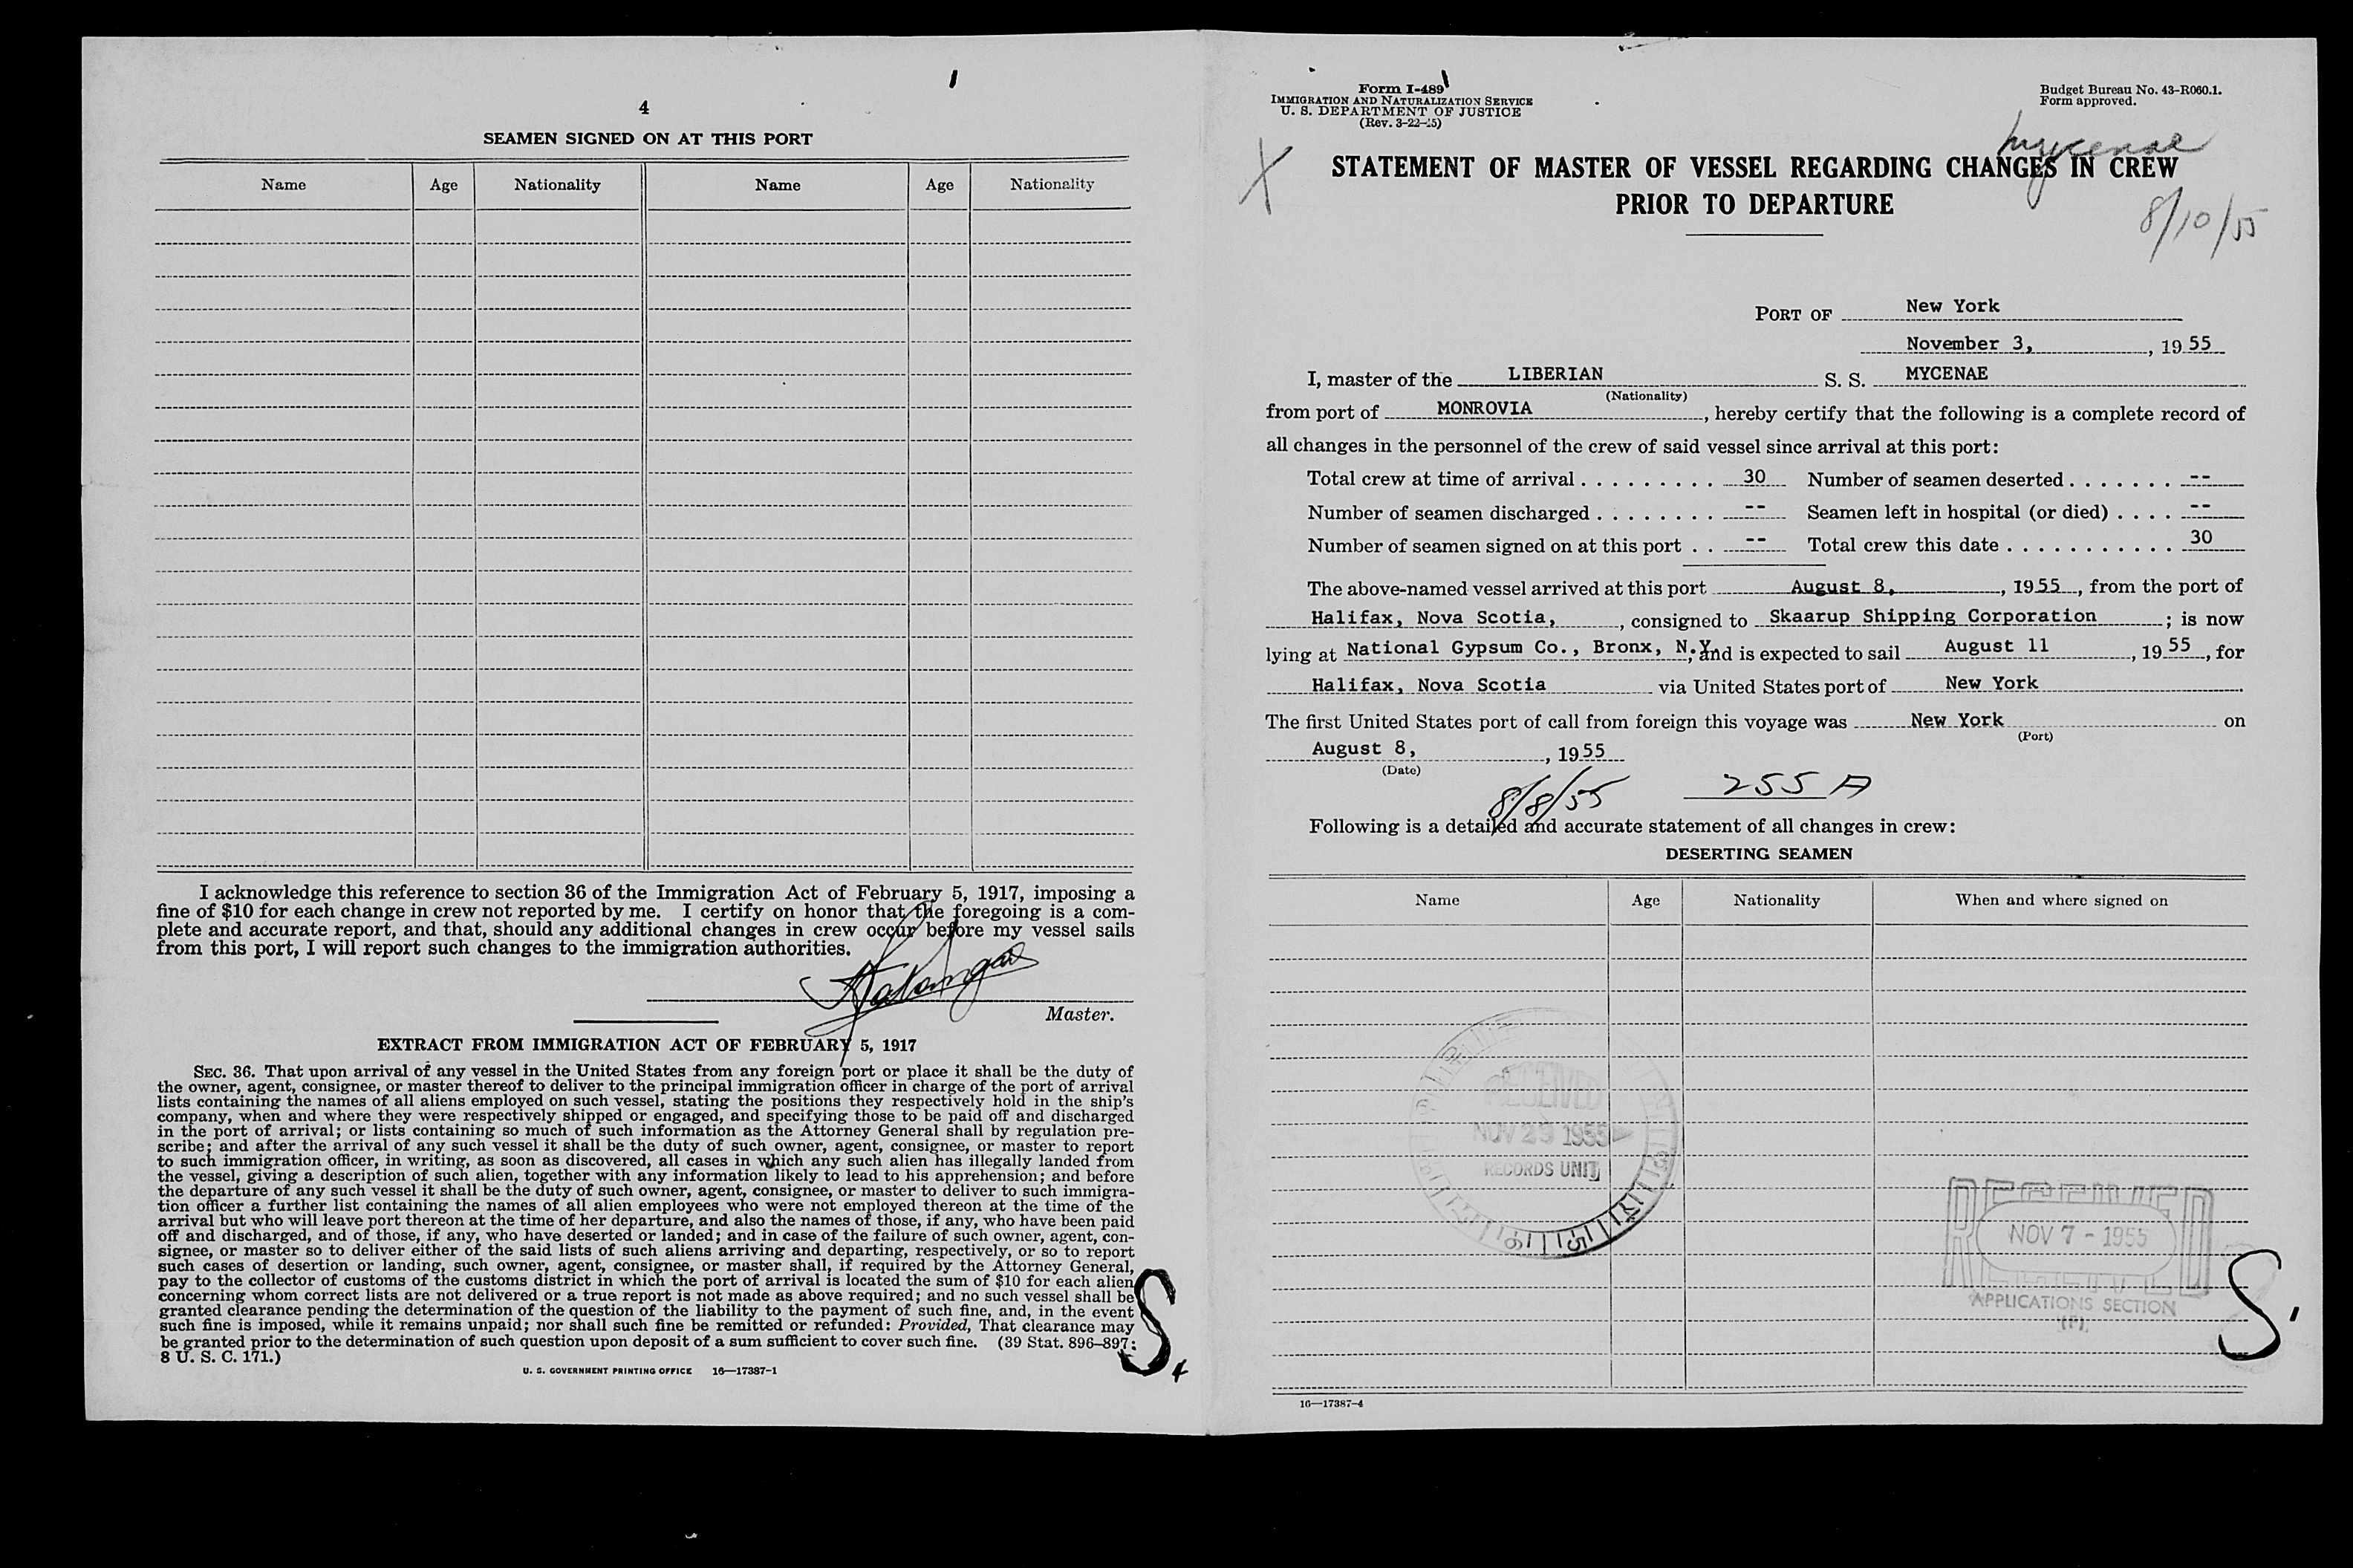 4
SEAMEN SIGNED ON AT THIS PORT
Name Age Nationality Name Age Nationality
I acknowledge this reference to section 36 of the Immigration Act of February 5, 1917, imposing a
fine of $10 for each change in crew not reported by me. I certify on honor that the foregoing is a com-
plete and accurate report, and that, should any additional changes in crew occur before my vessel sails
from this port, I will report such changes to the immigration authorities.
Master.
EXTRACT FROM IMMIGRATION ACT OF FEBRUARY 5, 1917
SEC. 36. That upon arrival of any vessel in the United States from any foreign port or place it shall be the duty of
the owner, agent, consignee, or master thereof to deliver to the principal immigration officer in charge of the port of arrival
lists containing the names of all aliens employed on such vessel, stating the positions they respectively hold in the ship's
company, when and where they were respectively shipped or engaged, and specifying those to be paid off and discharged
in the port of arrival; or lists containing so much of such information as the Attorney General shall by regulation pre-
scribe; and after the arrival of any such vessel it shall be the duty of such owner, agent, consignee, or master to report
to such immigration officer, in writing, as soon as discovered, all cases in which any such alien has illegally landed from
the vessel, giving a description of such alien, together with any information likely to lead to his apprehension; and before
the departure of any such vessel it shall be the duty of such owner, agent, consignee, or master to deliver to such immigra-
tion officer a further list containing the names of all alien employees who were not employed thereon at the time of the
arrival but who will leave port thereon at the time of her departure, and also the names of those, if any, who have been paid
off and discharged, and of those, if any, who have deserted or landed; and in case of the failure of such owner, agent, con-
signee, or master so to deliver either of the said lists of such aliens arriving and departing, respectively, or so to report
such cases of desertion or landing, such owner, agent, consignee, or master shall, if required by the Attorney General,
pay to the collector of customs of the customs district in which the port of arrival is located the sum of $10 for each alien
concerning whom correct lists are not delivered or a true report is not made as above required; and no such vessel shall be
granted clearance pending the determination of the question of the liability to the payment of such fine, and, in the event
such fine is imposed, while it remains unpaid; nor shall such fine be remitted or refunded: Provided, That clearance may
be granted prior to the determination of such question upon deposit of a sum sufficient to cover such fine. (39 Stat. 896–897;
8 U. S. C. 171.)
U. S. GOVERNMENT PRINTING OFFICE 16—17387-1
S.
Form I-489
IMMIGRATION AND NATURALIZATION SERVICE
U. S. DEPARTMENT OF JUSTICE
(Rev. 3-22-45)
Budget Bureau No. 43-R060.1.
Form approved.
Mycenae
X
STATEMENT OF MASTER OF VESSEL REGARDING CHANGES IN CREW
PRIOR TO DEPARTURE
8/10/55
PORT OF New York
November 3, , 19 55
I, master of the LIBERIAN S. S. MYCENAE
(Nationality)
from port of MONROVIA , hereby certify that the following is a complete record of
all changes in the personnel of the crew of said vessel since arrival at this port:
Total crew at time of arrival . . . . . . . . . 30 Number of seamen deserted . . . . . . . --
Number of seamen discharged . . . . . . . . -- Seamen left in hospital (or died) . . . . --
Number of seamen signed on at this port . . -- Total crew this date . . . . . . . . . . . 30
The above-named vessel arrived at this port August 8, , 1955 , from the port of
Halifax, Nova Scotia, , consigned to Skaarup Shipping Corporation ; is now
lying at National Gypsum Co., Bronx, N.Y., and is expected to sail August 11 , 19 55 , for
Halifax, Nova Scotia via United States port of New York .
The first United States port of call from foreign this voyage was New York on
(Port)
August 8, , 1955
(Date)
8/8/55 255 A
Following is a detailed and accurate statement of all changes in crew:
DESERTING SEAMEN
Name Age Nationality When and where signed on
RECEIVED
NOV 23 1955
RECORDS UNIT
RECEIVED
NOV 7 - 1955
APPLICATIONS SECTION
S.
16—17387-4